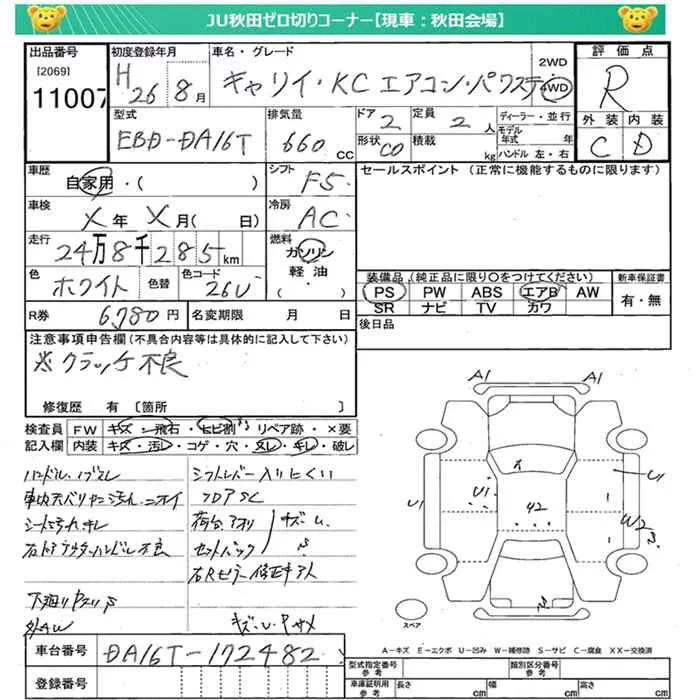 JU秋田ゼロ切りコーナー【現車：秋田会場】
出品番号 初度登録年月 車名・グレード 2WD 評価点
[2069] H 26 8月 キャリイ・KC エアコン・パワステ 4WD R
11007
型式 排気量 ドア 定員 ディーラー・並行 外装 内装
EBD-DA16T 660 CC 2 2人 モデル年式 年 C D
形状 CO 積載 kg ハンドル 左・右
車歴 シフト セールスポイント（正常に機能するものに限ります）
自家用・（ ） F5
車検 冷房
X年 X月（ 日） AC
走行 燃料
24万8千285km ガソリン
色 色替 色コード 軽油・
ホワイト 26U （ ）
装備品（純正品に限り○をつけてください） 新車保証書
PS PW ABS エアB AW 有・無
SR ナビ TV カワ
R券 6,780円 名変期限 月 日 後日品
注意事項申告欄（不具合内容等は具体的に記入して下さい）
※クラッチ不良
修復歴 有 〔箇所 〕
検査員 FW キズ・飛石・ヒビ割・リペア跡・×要
記入欄 内装 キズ・汚レ・コゲ・穴・ヌレ・キレ・破レ
シフトレバー入りにくい
車内天バリヤニ汚れ、ニオイ フロアSC
シート汚れキレ 荷台アオリ キズ・U
右ドアアウターハンドル不良 セットバック S
右Rピラー修正キ入
下廻りPスリS
外AW キズ・U・Pサメ
A1 A1
U1 U1 42 U1
W2 S
スペア
A－キズ E－エクボ U－凹み W－補修跡 S－サビ C－腐食 XX－交換済
車台番号 DA16T-172482 型式指定番号 参考 類別区分番号 参考
登録番号 車庫証明用 参考 長さ cm 幅 cm 高さ cm